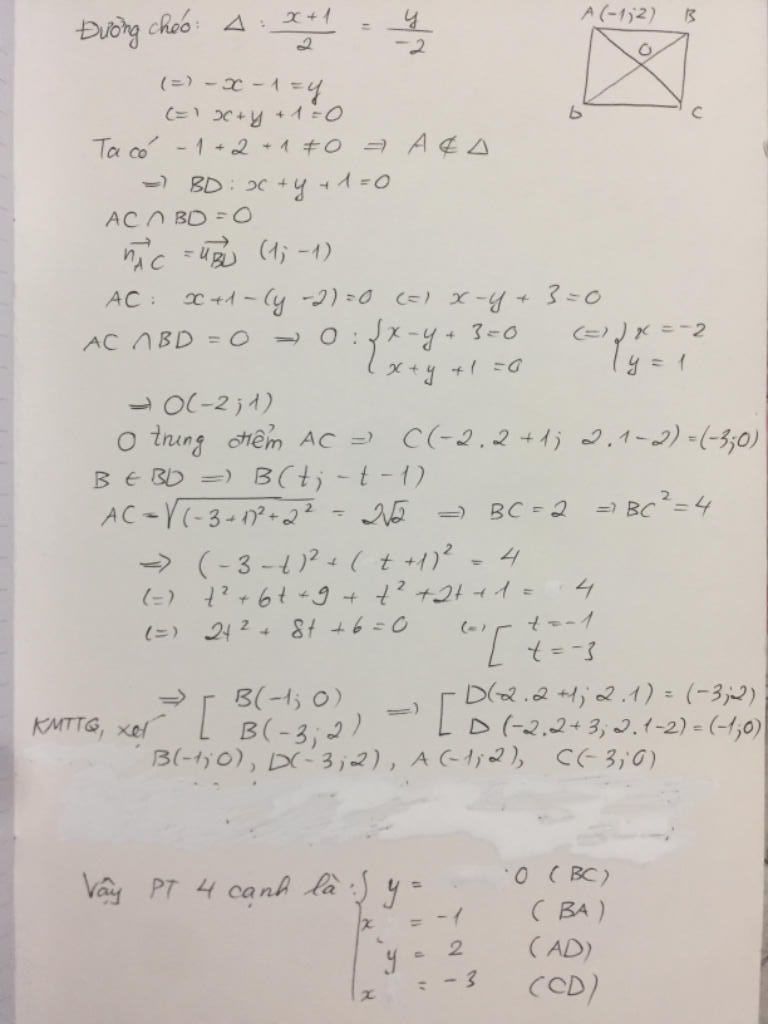 Đường chéo: Δ : x+1/2 = y/-2
A(-1;2) B
O
D C
(=) -x - 1 = y
(=) x+y+1=0
Ta có -1+2+1≠0 => A ∉ Δ
=> BD: x+y+1=0
AC ∩ BD = O
n⃗AC = u⃗BD (1; -1)
AC: x+1-(y-2)=0 (=) x-y+3=0
AC ∩ BD = O => O: { x-y+3=0 (=) { x=-2
x+y+1=0 y=1
=> O(-2;1)
O trung điểm AC => C(-2.2+1; 2.1-2)=(-3;0)
B ∈ BD => B(t; -t-1)
AC = √((-3+1)²+2²) = 2√2 => BC = 2 => BC² = 4
=> (-3-t)² + (t+1)² = 4
(=) t²+6t+9+t²+2t+1 = 4
(=) 2t²+8t+6=0 (=) [ t=-1
t=-3
=> [ B(-1;0) => [ D(-2.2+1; 2.1) = (-3;2)
B(-3;2) D(-2.2+3; 2.1-2)=(-1;0)
KMTTQ, xét
B(-1;0), D(-3;2), A(-1;2), C(-3;0)
Vậy PT 4 cạnh là: { y = 0 (BC)
x = -1 (BA)
y = 2 (AD)
x = -3 (CD)